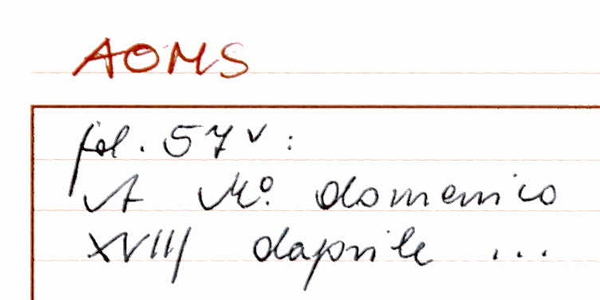 AOMS
fol. 57v:
A Mo. domenico
XVIII daprile ...